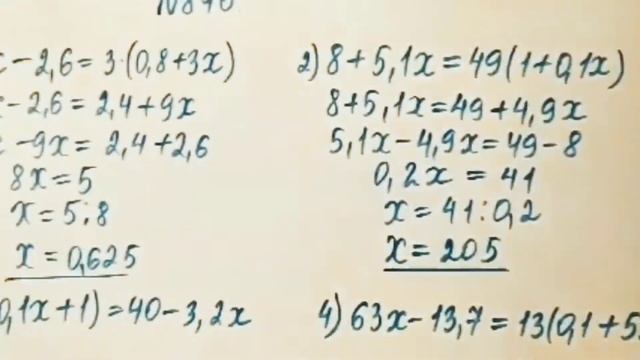 x - 2,6 = 3·(0,8+3x)
- 2,6 = 2,4+9x
- 9x = 2,4+2,6
8x = 5
x = 5:8
x = 0,625
0,1x+1) = 40-3,2x
2) 8+5,1x = 49(1+0,1x)
8+5,1x = 49+4,9x
5,1x-4,9x = 49-8
0,2x = 41
x = 41:0,2
x = 205
4) 63x-13,7 = 13(0,1+5,